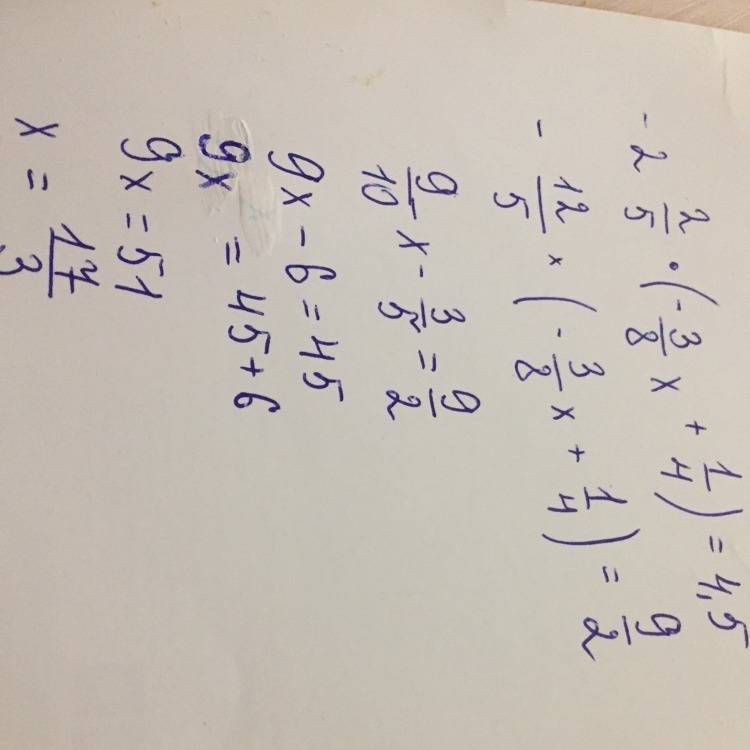 -2 2/5 · (-3/8 x + 1/4) = 4,5
- 12/5 × (-3/8 x + 1/4) = 9/2
9/10 x - 3/5 = 9/2
9x - 6 = 45
9x = 45 + 6
9x = 51
x = 17/3